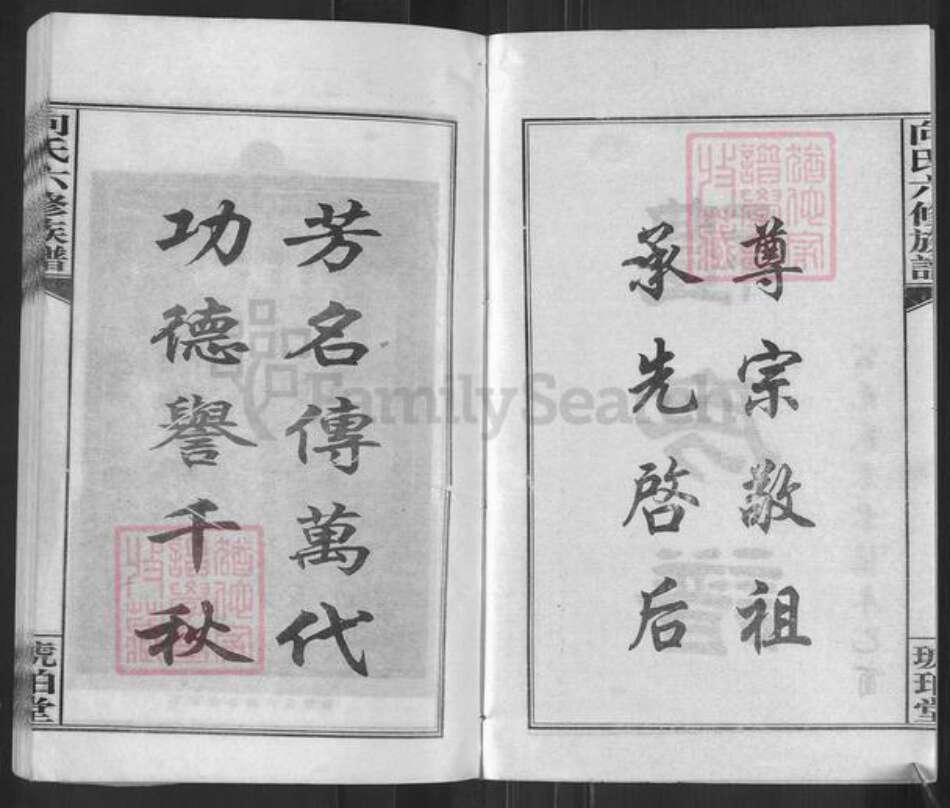 尊宗敬祖
承先啓后
芳名傳萬代
功德譽千秋
向氏六修族譜
向氏六修族譜
琥珀堂
FamilySearch